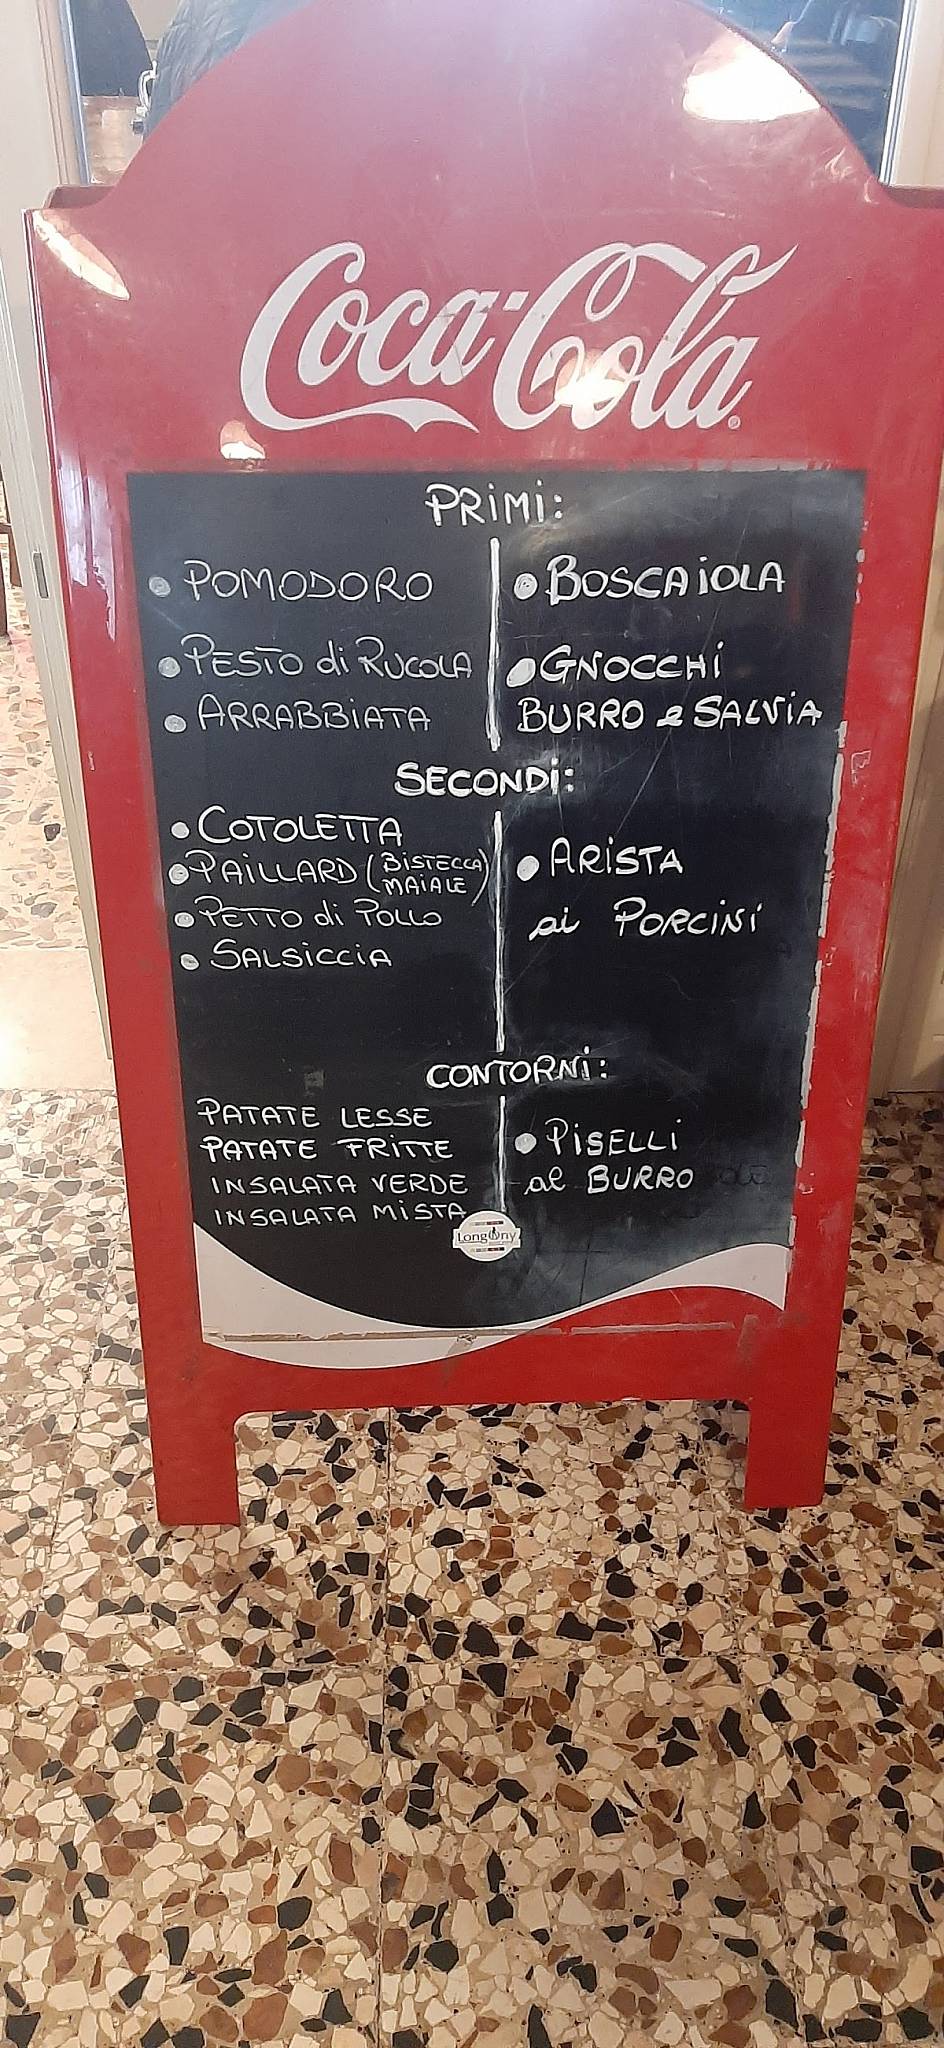 Coca-Cola
PRIMI:
• POMODORO
• PESTO di RUCOLA
• ARRABBIATA
• BOSCAIOLA
• GNOCCHI
BURRO e SALVIA
SECONDI:
• COTOLETTA
• PAILLARD (BISTECCA
MAIALE)
• PETTO di POLLO
• SALSICCIA
• ARISTA
ai PORCINI
CONTORNI:
PATATE LESSE
PATATE FRITTE
INSALATA VERDE
INSALATA MISTA
• PISELLI
al BURRO
LongOny